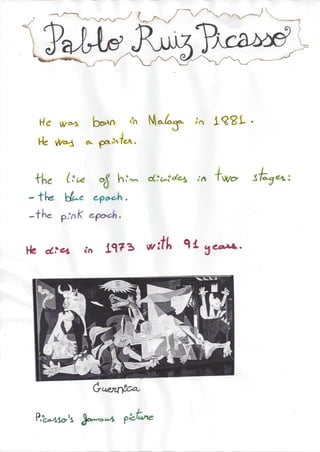 Pablo Ruiz Picasso
He was born in Malaga in 1881.
He was a painter.
the live of him divides in two stages:
- the blue epoch.
- the pink epoch.
He dies in 1973 with 91 years.
Guernica
Picasso's famous picture